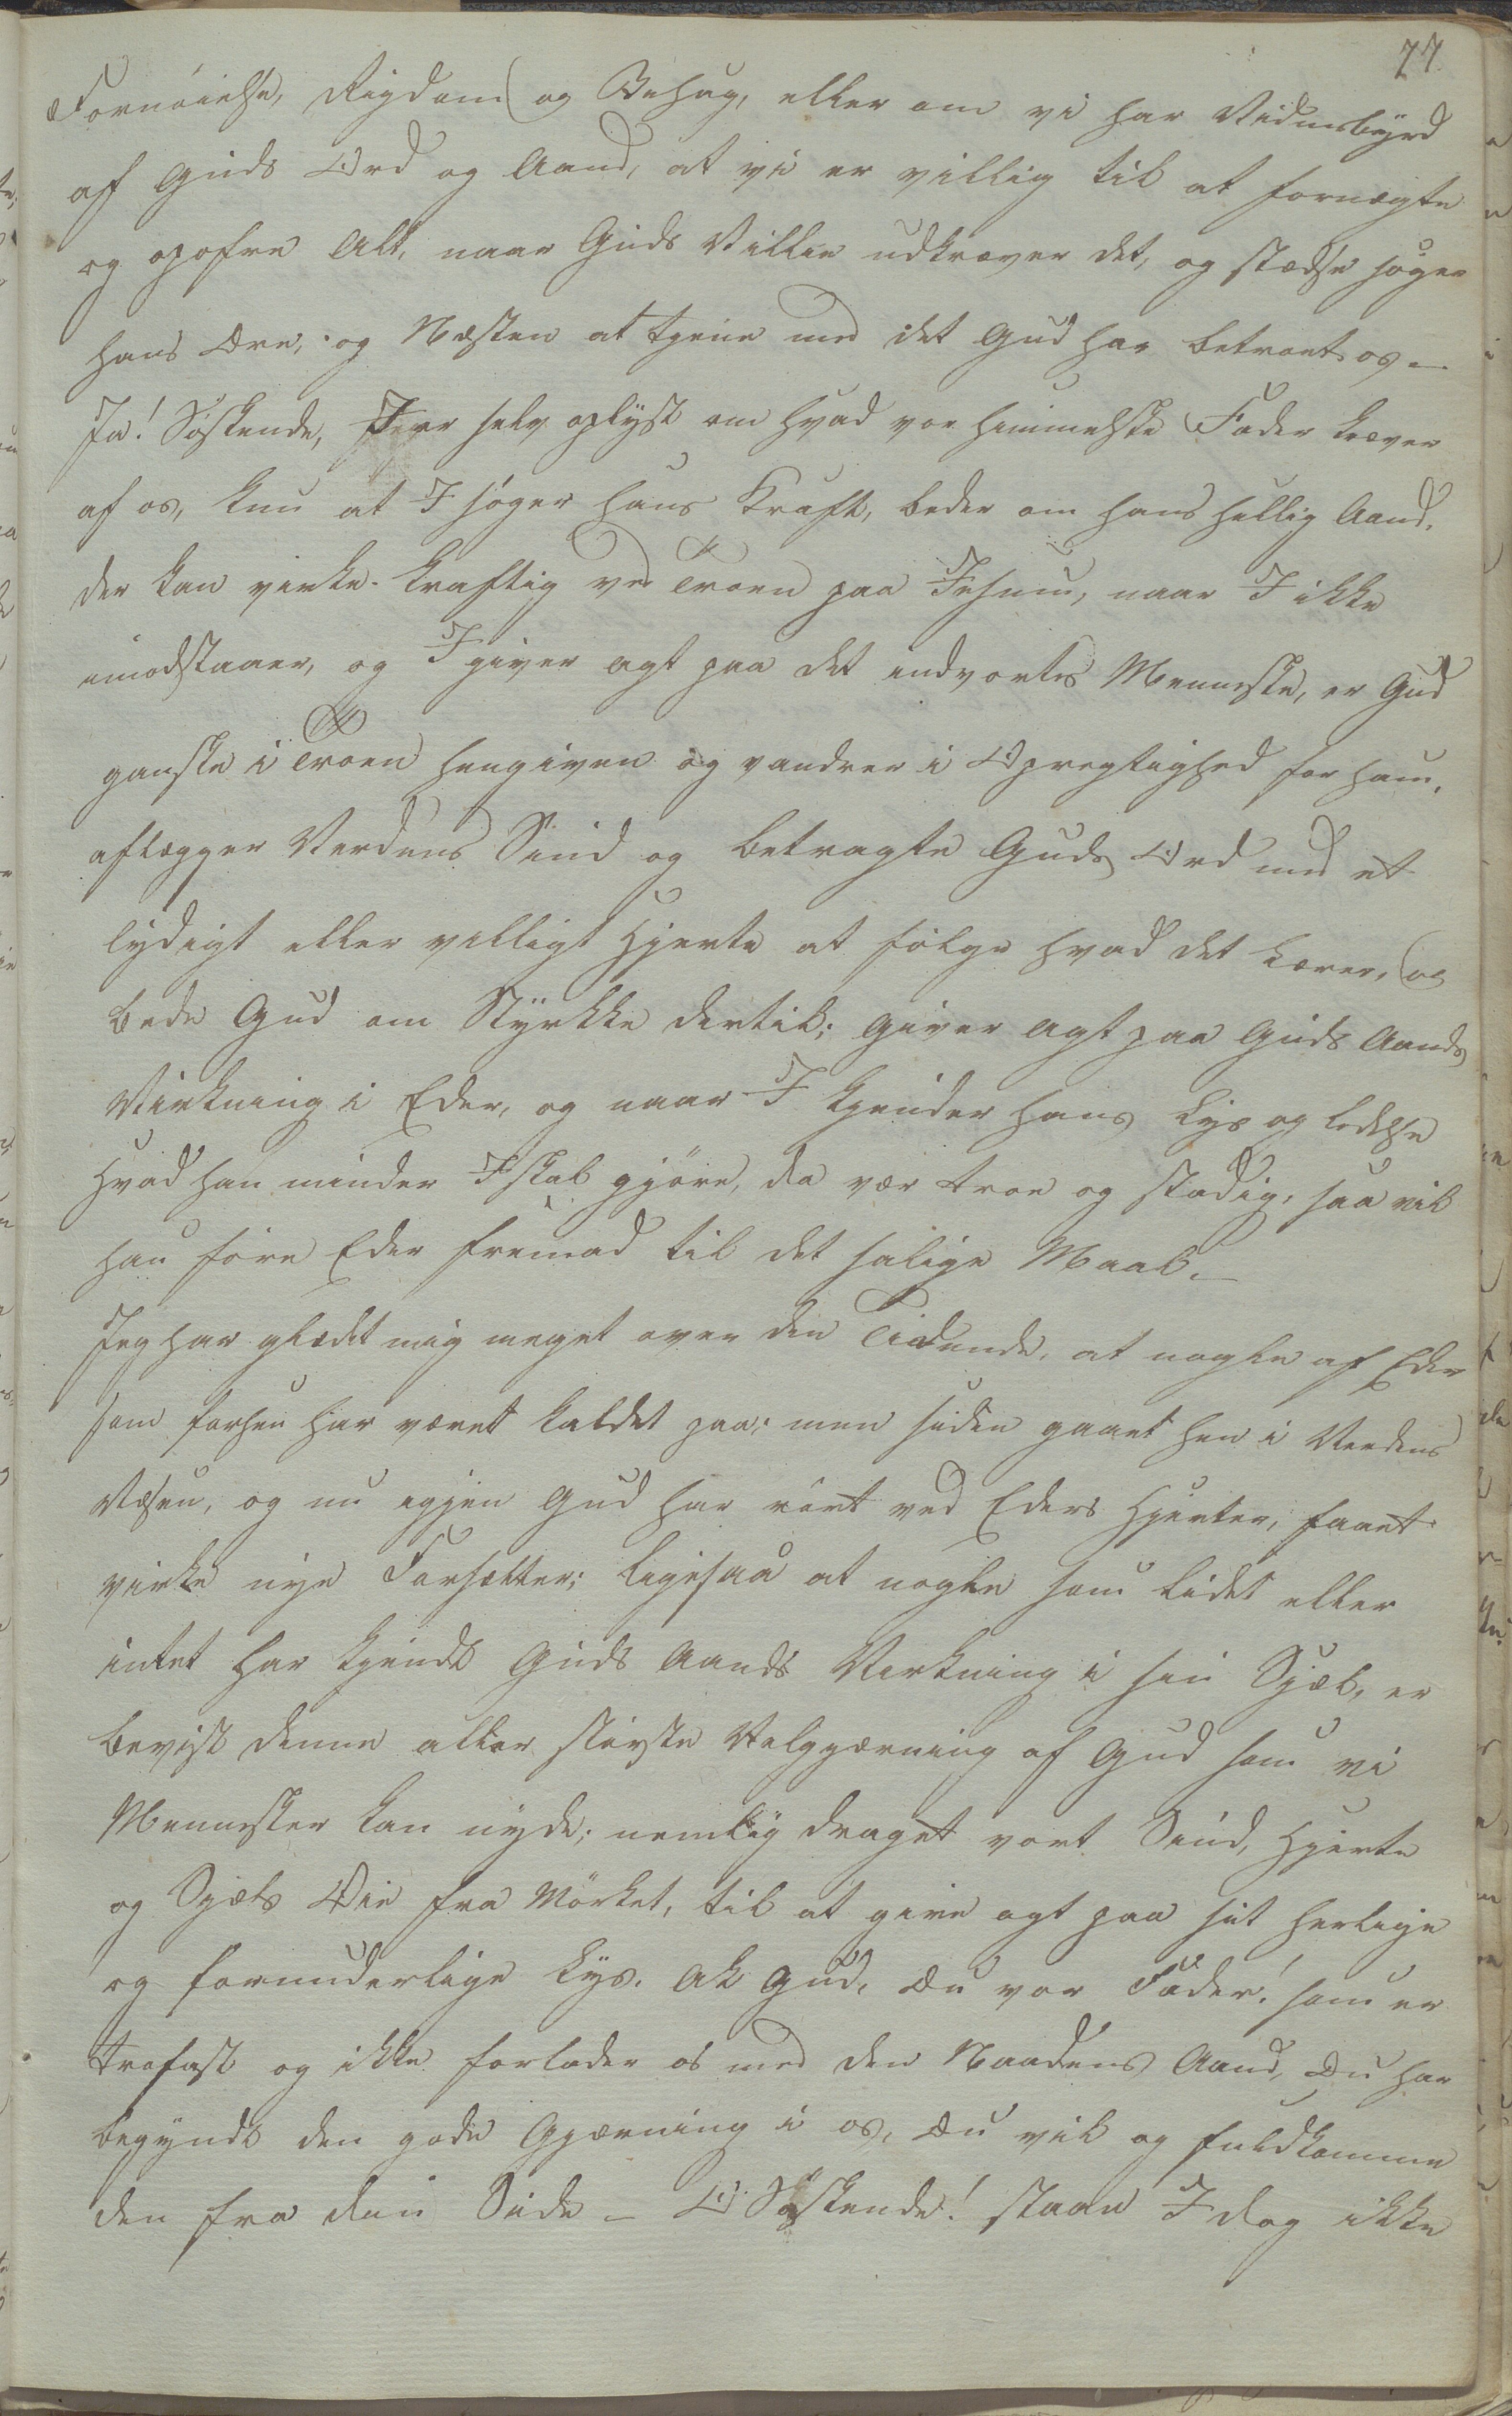 77
Fornøielse, Rigdom og Behag, eller om vi har Vidnesbyrd
af Guds Ord og Aand, at vi er villig til at fornægte
og opofre Alt, naar Guds Villie udkræver det, og stædse søger
hans Ære, og Næsten at tjene med det Gud har betroet os –
Ja! Søskende, I er selv oplyst om hvad vor himmelske Fader kræver
af os, kun at I søger hans Kraft, beder om hans hellig Aand,
der kan virke kraftig ved Troen paa Jesum, naar I ikke
imodstaaer, og I giver agt paa det indvortes Menneske, er Gud
ganske i Troen hengiven og vandrer i Opregtighed for ham,
aflægger Verdens Sind og betragte Guds Ord med et
lydigt eller villigt Hjerte at følge hvad det Lærer, og
bede Gud om Styrkke dertil; giver agt paa Guds Aands
Virkning i Eder, og naar I kjender hans Lys og ledelse
Hvad han minder I skal gjøre, da vær troe og stadig, saa vil
han føre Eder fremad til det salige Maal. –
Jeg har glædet mig meget over den Tidende, at nogle af Eder
som forhen har været kaldet paa; men siden gaaet hen i Verdens
Væsen, og nu igjen Gud har rørt ved Eders Hjerter, faaet
virke nye Forsætter; ligesaa at nogle som lidet eller
intet har kjendt Guds Aands Virkning i sin Sjæl, er
bevist denne aller største Velgjærning af Gud som vi
Mennesker kan nyde; nemlig draget vort Sind, Hjerte
og Sjæls Øie fra Mørket, til at give agt paa sit herlige
og forunderlige Lys. Ak Gud, Du vor Fader! som er
trofast og ikke forlader os med den Naadens Aand, Du har
begyndt den gode Gjærning i os, Du vil og fuldkomme
den fra din Side – O Søskende! staaer I dog ikke